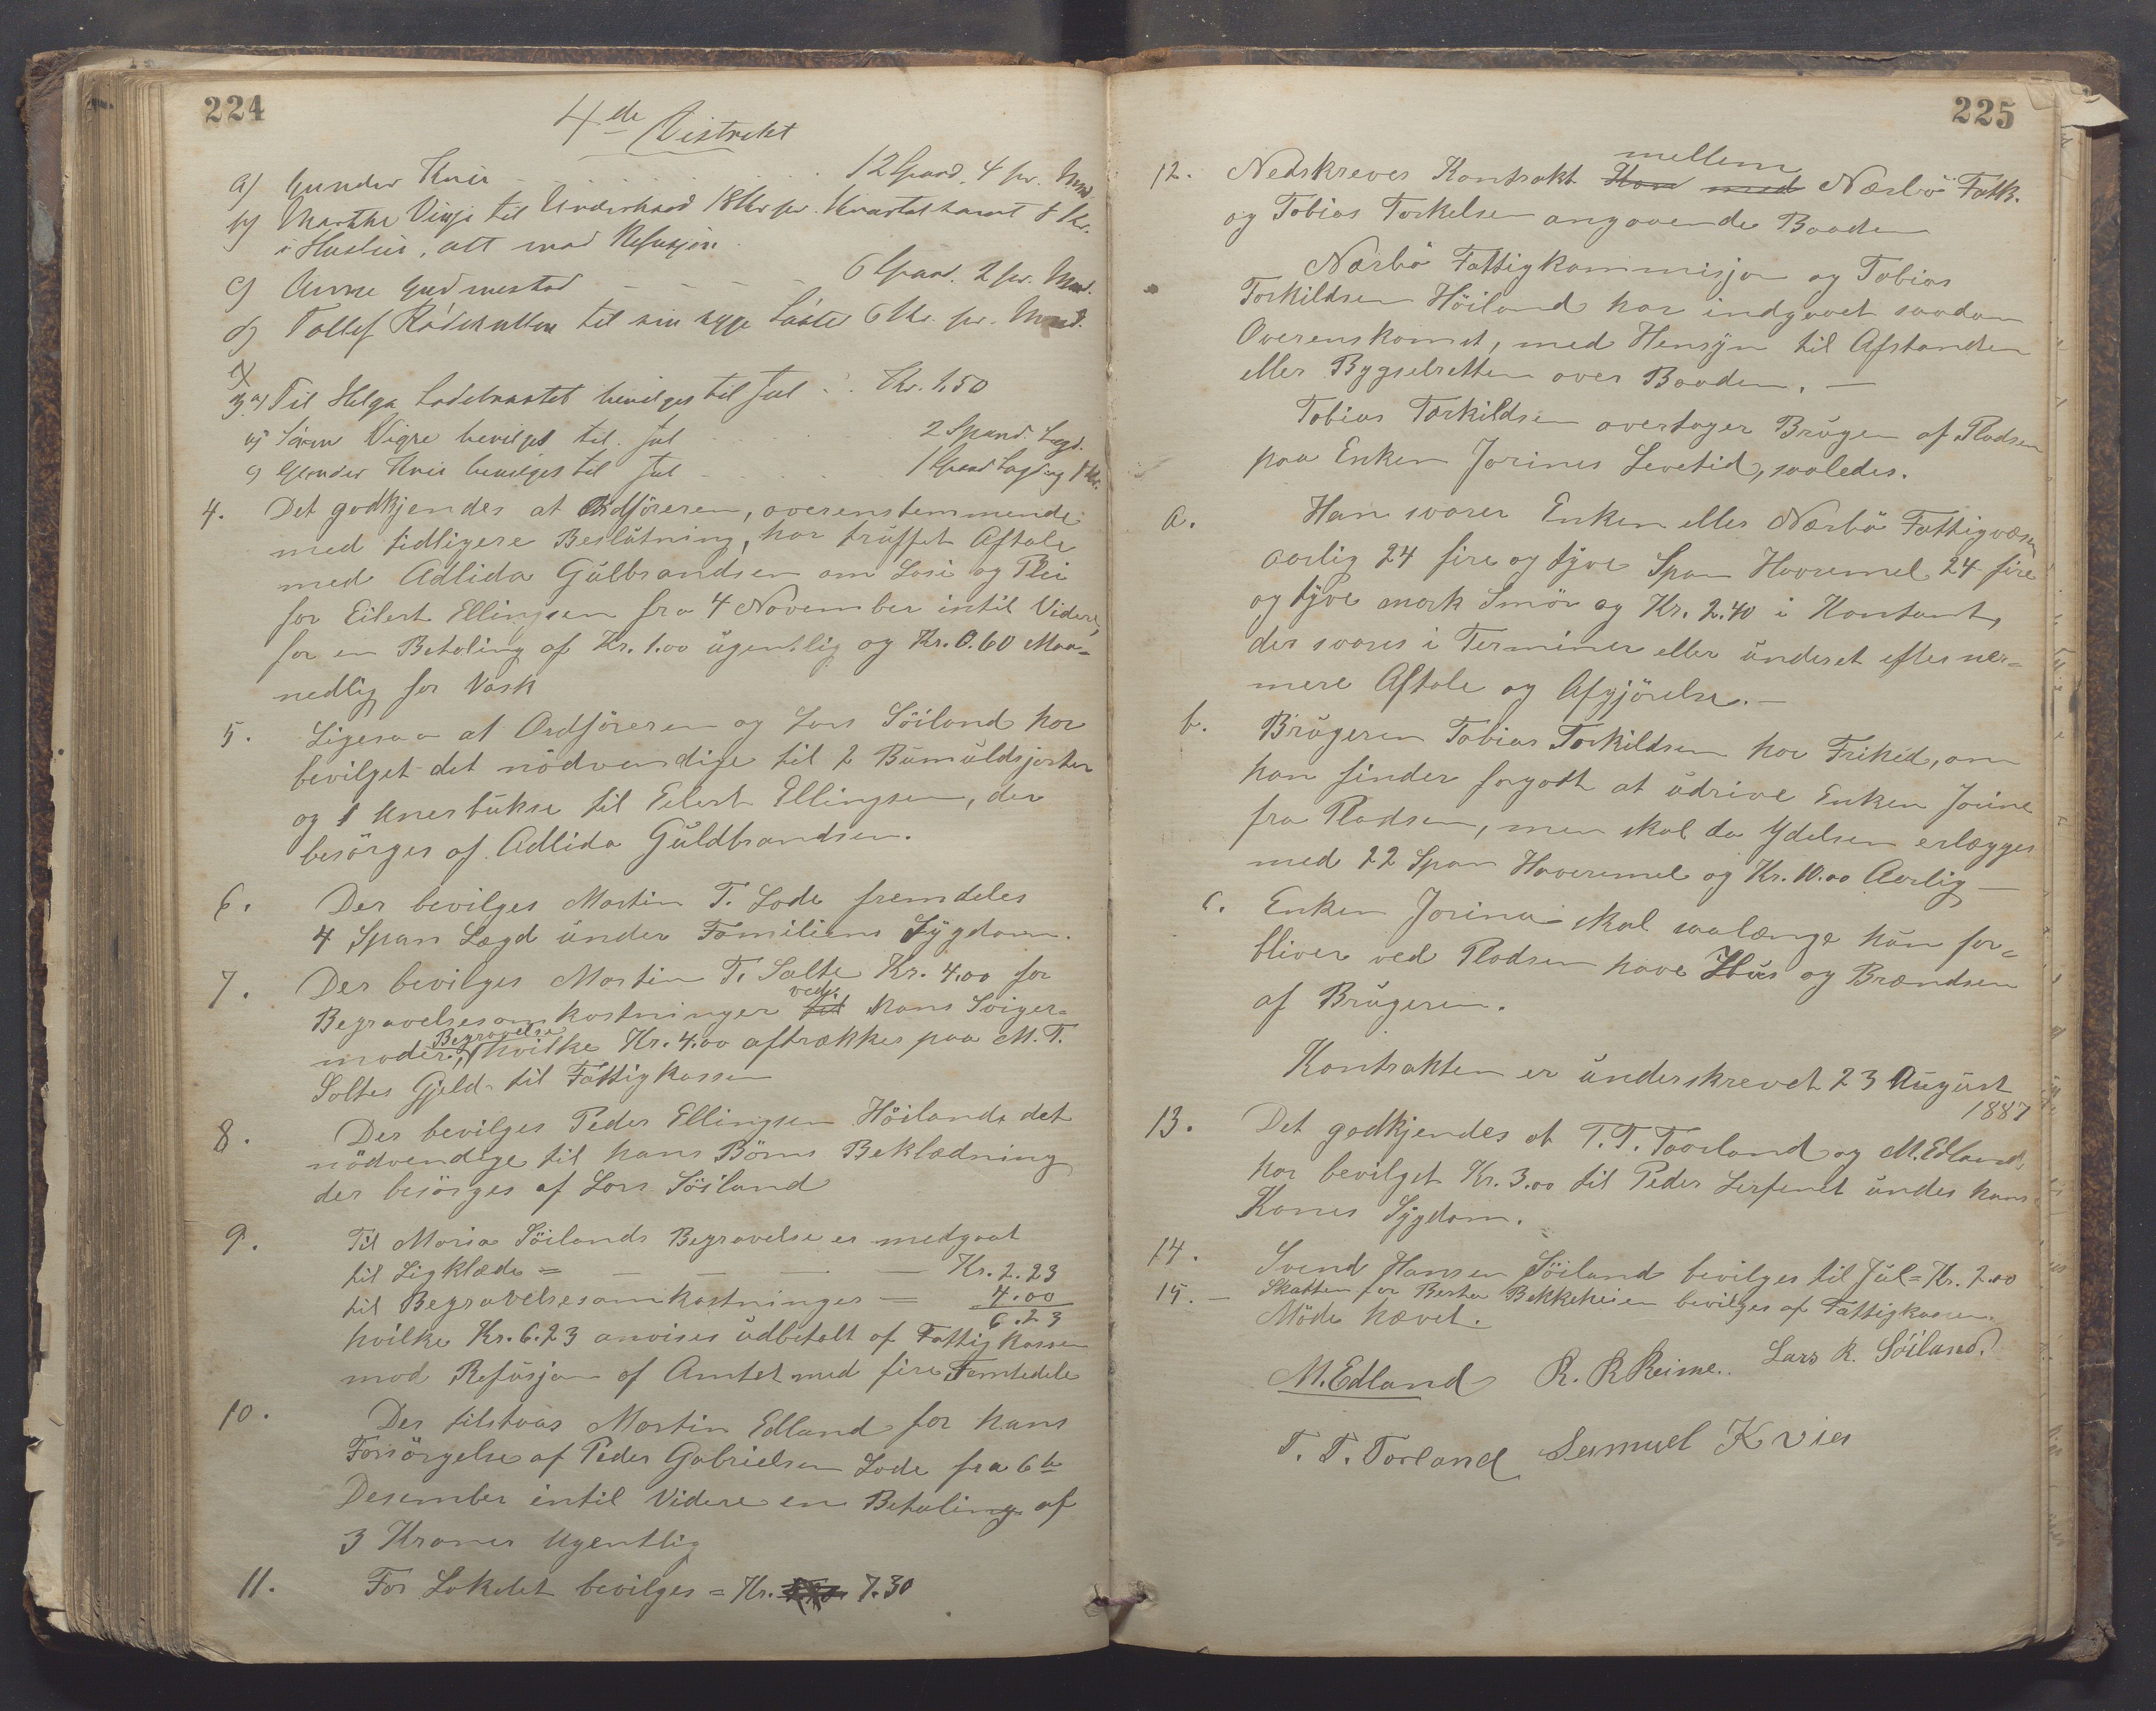 224
4de Distrekt
a) Gunder Kvia . . . . . 12 Spand. 4 pr. Mnd.
b) Marthe Vigre til Underhold 18 Kr pr. Kvartal samt 8 Kr.
i Husleie, alt mod Refusjon
c) Anne Gudmestad - - - - 6 Spand. 2 pr. Mnd.
d) Tollef til sin syge Søster 6 Kr. pr. Mnd.
3. a) Til Helga bevilges til Jul . . Kr. 1,50
b) Sören Vigre bevilges til Jul . . . 2 Spand. Lægd.
c) Gunder Kvia bevilges til Jul . . . 1 Spand Lægd og 1 Kr.
4. Det godkjendes at Ordföreren, overenstemmende
med tidligere Beslutning, har truffet Aftale
med Adlida Gulbrandsen om Losi og Plei
for Eilert Ellingsen fra 4 November intil Videre,
for en Betaling af Kr. 1.00 ugentlig og Kr. 0.60 Maa=
nedlig for Vask
5. Ligesaa at Ordföreren og Lars Söiland har
bevilget det nödvendige til 2 Bumuldsjorter
og 1 Unerbukse til Eilert Ellingsen, der
besörges af Adlida Guldbrandsen.
6. Der bevilges Martin T. Lode fremdeles
4 Span Lægd under Familiens Sygdom.
7. Der bevilges Martin T. Salte Kr. 4.00 for
Begravelsesomkostninger til ved hans Sviger=
moders Begravelse, hvilke Kr. 4.00 aftrækkes paa M. T.
Saltes Gjeld til Fattigkassen
8. Der bevilges Peder Ellingsen Höiland det
nödvendige til hans Börns Beklædning
der besörges af Lars Söiland
9. Til Maria Söilands Begravelse er medgaat
til Ligklæde = — — — — Kr. 2.23
til Begravelsesomkostninger = 4.00
6.23
hvilke Kr. 6.23 anvises udbetalt af Fattigkassen
mod Refusjon af Amtet med fire Femtedele
10. Der tilstaas Martin Edland for hans
Forsörgelse af Peder Gabrielsen Lode fra 6te
Desember intil Videre en Betaling af
3 Kroner Ugentlig
11. For Lokalet bevilges = Kr. 7.30
225
12. Nedskreves Kontrakt Kon med mellem Nærbö Fattk.
og Tobias Torkelsen angaaende Baaden
Nærbö Fattigkommisjon og Tobias
Torkildsen Höiland har indgaaet saadan
Overenskomst, med Hensyn til Afstanden
eller Bygselretten over Baaden. —
Tobias Torkildsen overtager Brugen af Pladsen
paa Enken Jorines Levetid, saaledes.
a. Han svarer Enken eller Nærbö Fattigvæsen
aarlig 24 fire og tyve Span Havremel 24 fire
og tyve mark Smör og Kr. 2.40 i Kontant,
der svares i Terminer eller underet efter nær=
mere Aftale og Afgjörelse. —
b. Brugeren Tobias Torkildsen har Frihed, om
han finder forgodt at udrive Enken Jorine
fra Pladsen, men skal da Ydelsen erlægges
med 22 Span Havremel og Kr. 10.00 Aarlig —
c. Enken Jorine skal saalænge hun for=
bliver ved Pladsen have Hus og Brændsen
af Brugeren.
Kontrakten er underskrevet 23 August
1887
13. Det godkjendes at T. T. Taarland og M. Edland
har bevilget Kr. 3.00 til Peder under hans
Kones Sygdom.
14. Svend Hansen Söiland bevilges til Jul = Kr. 2.00
15. — Skatten for Berta Bekkeheien bevilges af Fattigkassen.
Möde hævet.
M. Edland R. R Reime. Lars R. Söiland.
T. T. Torland Samuel Kvia